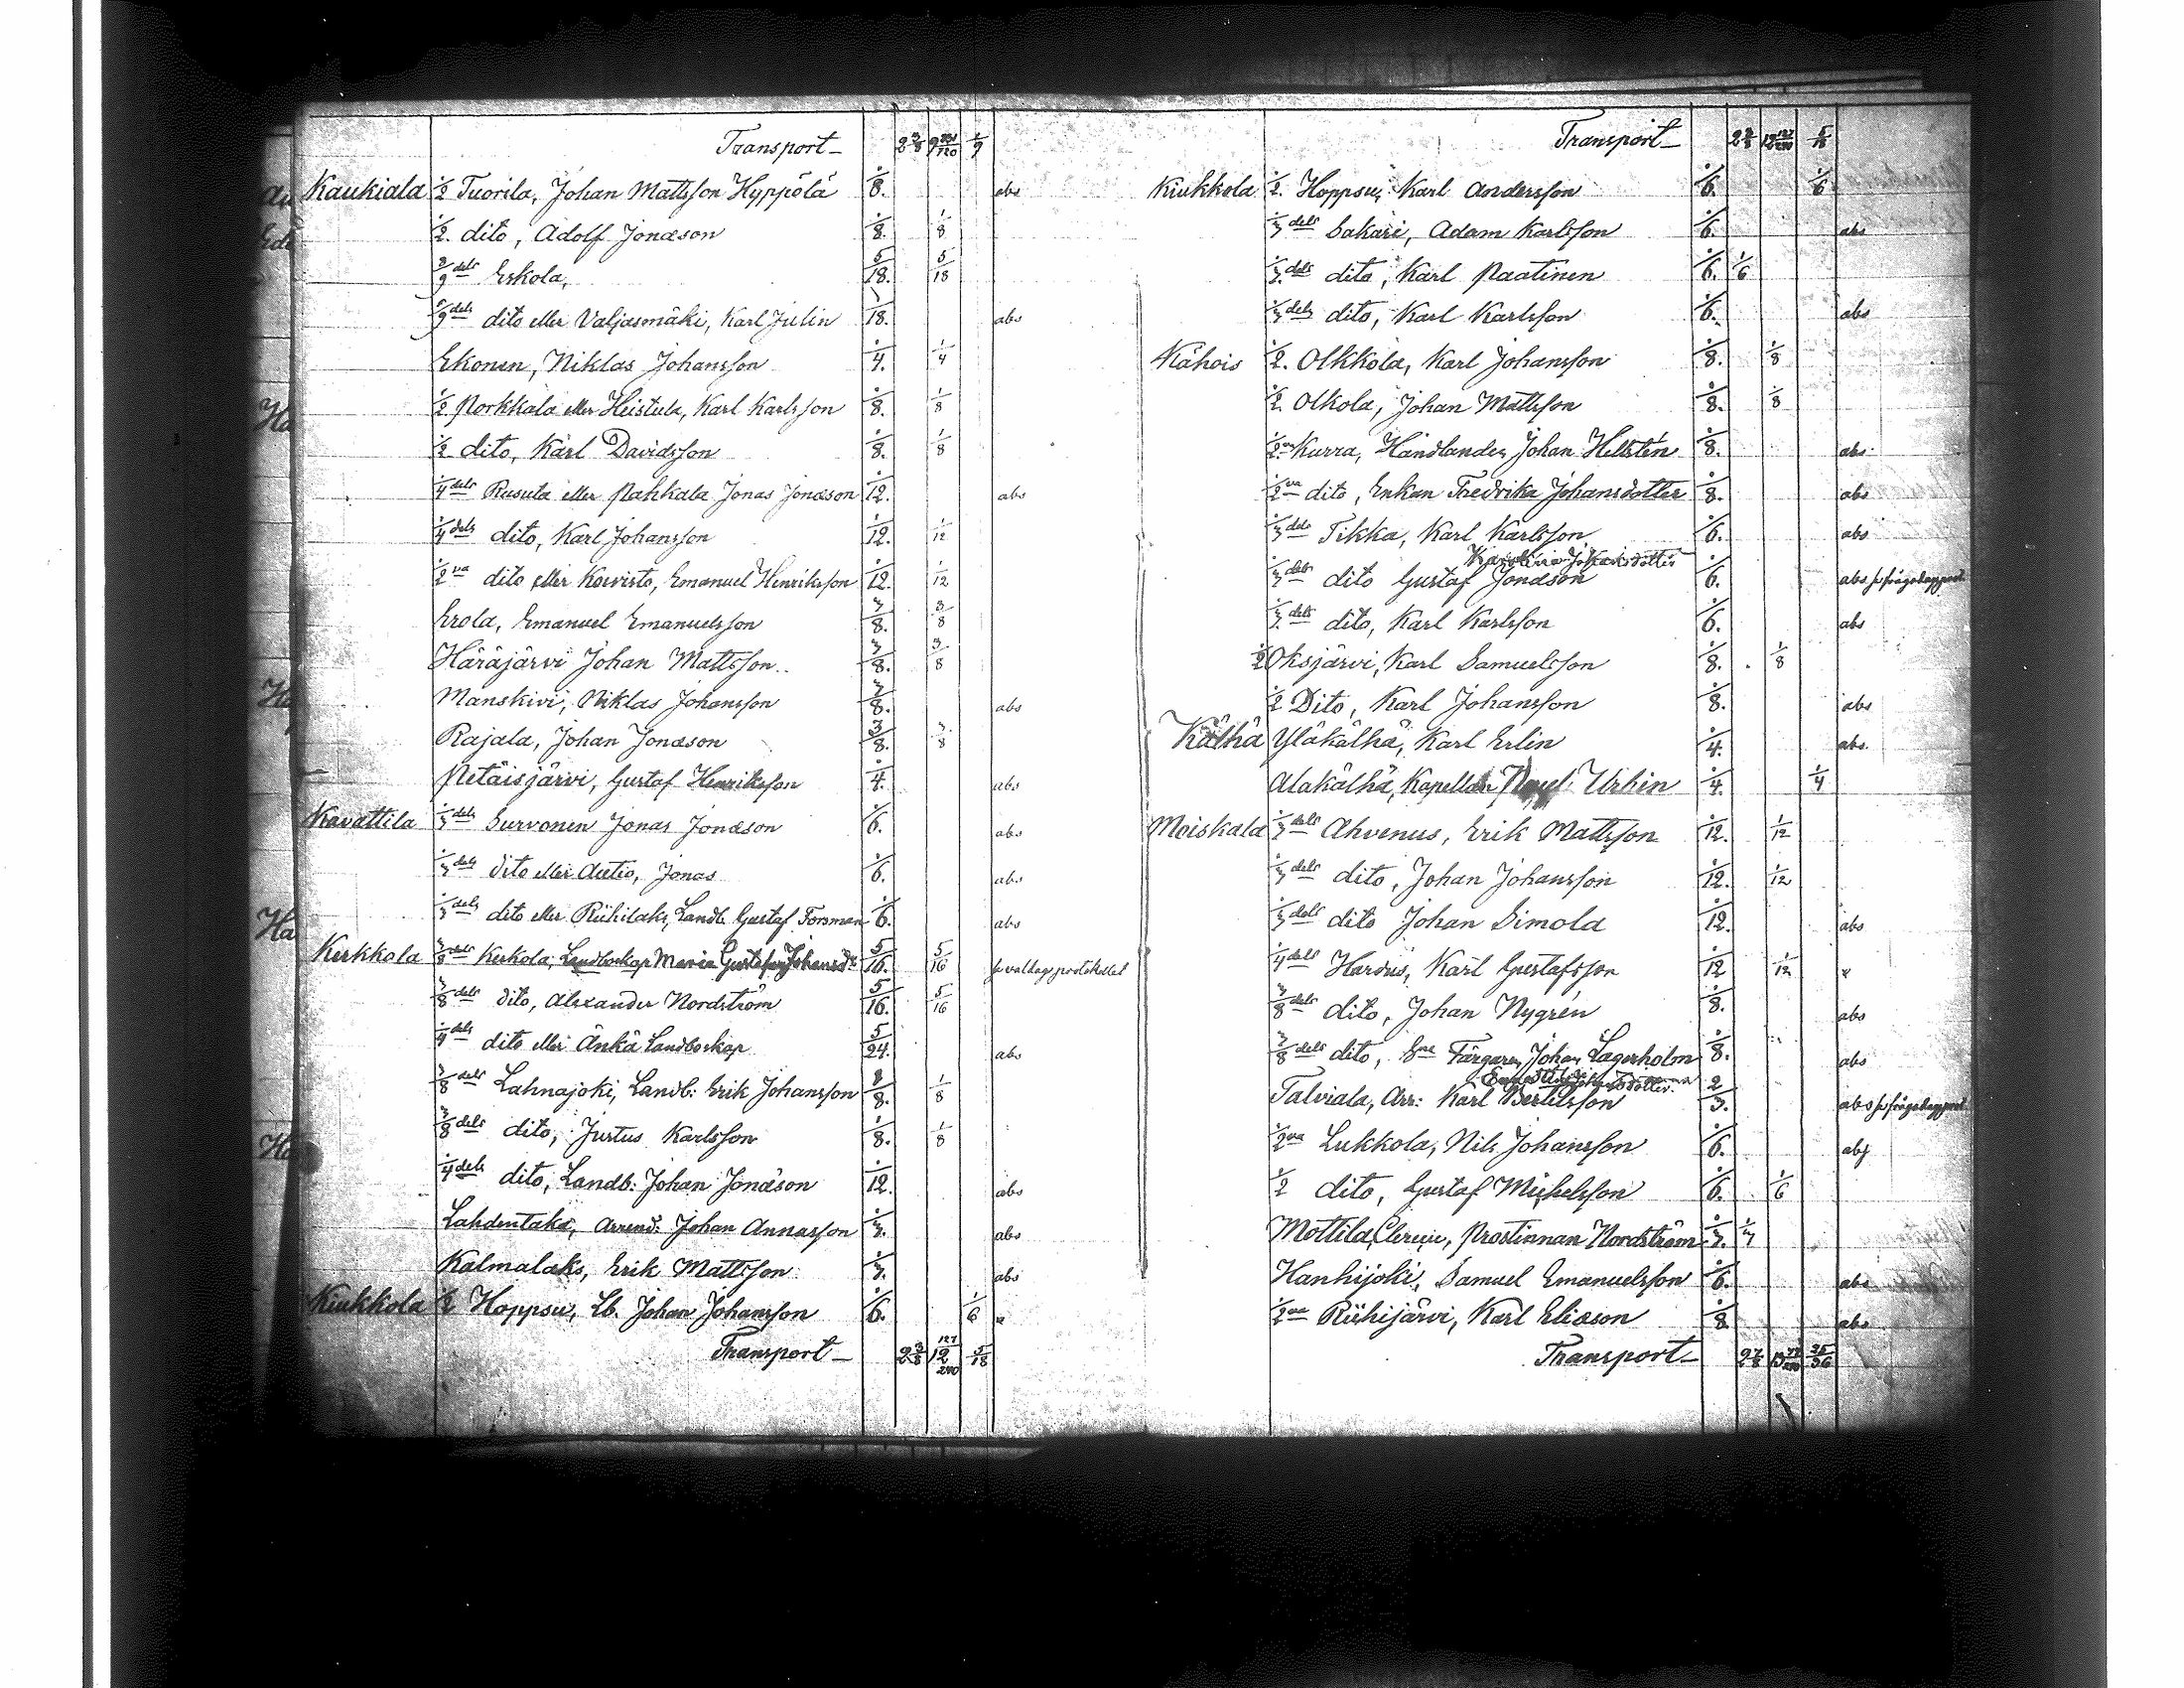 Transport 2 3/8 9 1/9
Kaukiala 1/2 Tuorila, Johan Mattsson Hyppölä 1/8. abs
1/2. dito, Adolf Jonasson 1/8. 1/8
Eskola, 5/18. 5/18
1/9 dels dito eller Valjasmäki, Karl Julin 1/18. abs
Ekonen, Niklas Johansson 1/4. 1/4
1/2 Porkkala eller Heistula, Karl Karlsson 1/8. 1/8
1/2 dito, Karl Davidsson 1/8. 1/8
1/4 dels Rusula eller Pahkala Jonas Jonasson 1/12. abs
1/4 dels dito, Karl Johansson 1/12. 1/12
1/2 va dito eller Koivisto, Emanuel Henriksson 1/12. 1/12
Erola, Emanuel Emanuelsson 3/8. 3/8
Häräjärvi Johan Mattsson 3/8. 3/8
Manskivi, Niklas Johansson 3/8. abs
Rajala, Johan Jonasson 3/8. 3/8
Petäisjärvi, Gustaf Henriksson 1/4. abs
Kavattila 1/3 dels Survonen Jonas Jonasson 1/6. abs
1/3 dels dito eller Autio, Jonas 1/6. abs
1/3 dels dito eller Riihilaks, Landb. Gustaf Forsman 1/6. abs
Kirkkola 3/8 dels Kirkola, Landboskap Maria Johansd:r 5/16. 5/16 valdagsprotokollet
3/8 dels dito, Alexander Nordström 5/16. 5/16
1/4 dels dito eller Änkä Landboskap 5/24. abs
3/8 dels Lahnajoki, Landb: Erik Johansson 1/8. 1/8
3/8 dels dito, Justus Karlsson 1/8. 1/8
1/4 dels dito, Landb: Johan Jonasson 1/12. abs
Lahdentaka, Arrend: Johan Annasson 1/3. abs
Kalmalaks, Erik Mattsson 1/3. abs
Kiukkola 1/2 Hoppsu, Lb. Johan Johansson 1/6. 1/6 x
Transport 2 3/8 12 127/240 5/18
Transport 2 3/8 12 127/240 5/18
Kiukkola 1/2. Hoppsu, Karl Andersson 1/6. 1/6
1/3 dels Sakari, Adam Karlsson 1/6. abs
1/3 dels dito, Karl Paatinen 1/6. 1/6
1/3 dels dito, Karl Karlsson 1/6. abs
Kähois 1/2. Olkkola, Karl Johansson 1/8. 1/8
1/2. Olkola, Johan Mattsson 1/8. 1/8
1/2 va Kurra, Handlanden Johan Hellstén 1/8. abs
1/2 va dito, Enkan Fredrika Johansdotter 1/8. abs
1/3 dels Tikka, Karl Karlsson 1/6. abs
Karolina Johansdotter
1/3 dels dito Gustaf Jonasson 1/6. abs
1/3 dels dito, Karl Karlsson 1/6. abs
1/2 Oksjärvi, Karl Samuelsson 1/8. 1/8
1/2 Dito, Karl Johansson 1/8. abs
Kälhä Yläkälhä, Karl Erlin 1/4. abs
Alakälhä, Kapellan Urhin 1/4. 1/4
Moiskala 1/3 dels Ahvenus, Erik Mattsson 1/12. 1/12
1/3 dels dito, Johan Johansson 1/12. 1/12
1/3 dels dito Johan Simola 1/12. abs
1/4 dels Hardus, Karl Gustafsson 1/12 1/12 x
3/8 dels dito, Johan Nygrén 1/8. abs
3/8 dels dito, Färgaren Johan Lagerholm 1/8. abs
Talviala, Arr: Karl Bertilsson 2/3. abs
1/2 va Lukkola, Nils Johansson 1/6. abs
1/2 dito, Gustaf Michelsson 1/6. 1/6
Mottila, Clerici, Prostinnan Nordström 1/3. 1/3
Hanhijoki, Samuel Emanuelsson 1/6. abs
1/2 va Riihijärvi, Karl Eliasson 1/8 abs
Transport 2 7/8 25/36